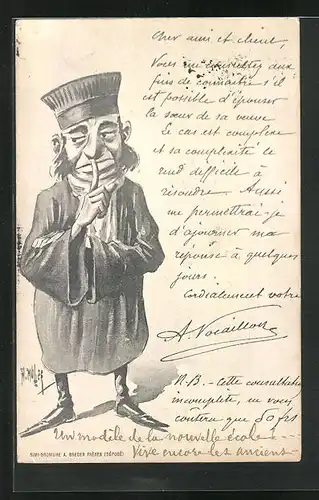 Cher ami et client,
Vous me consultez aux
fins de connaître s'il
est possible d'épouser
la sœur de sa veuve
Le cas est complexe
et sa complexité le
rend difficile à
résoudre. Aussi
me permettrai-je
d'ajourner ma
réponse à quelques
jours.
Cordialement votre
A. Vocaillon
N.B. - Cette consultation
incomplète, ne vous
coûtera que 50 frs
Un modèle de la nouvelle école...
Vive encore les anciens
SIMILI-BROMURE A. BREGER FRÈRES (DÉPOSÉ)